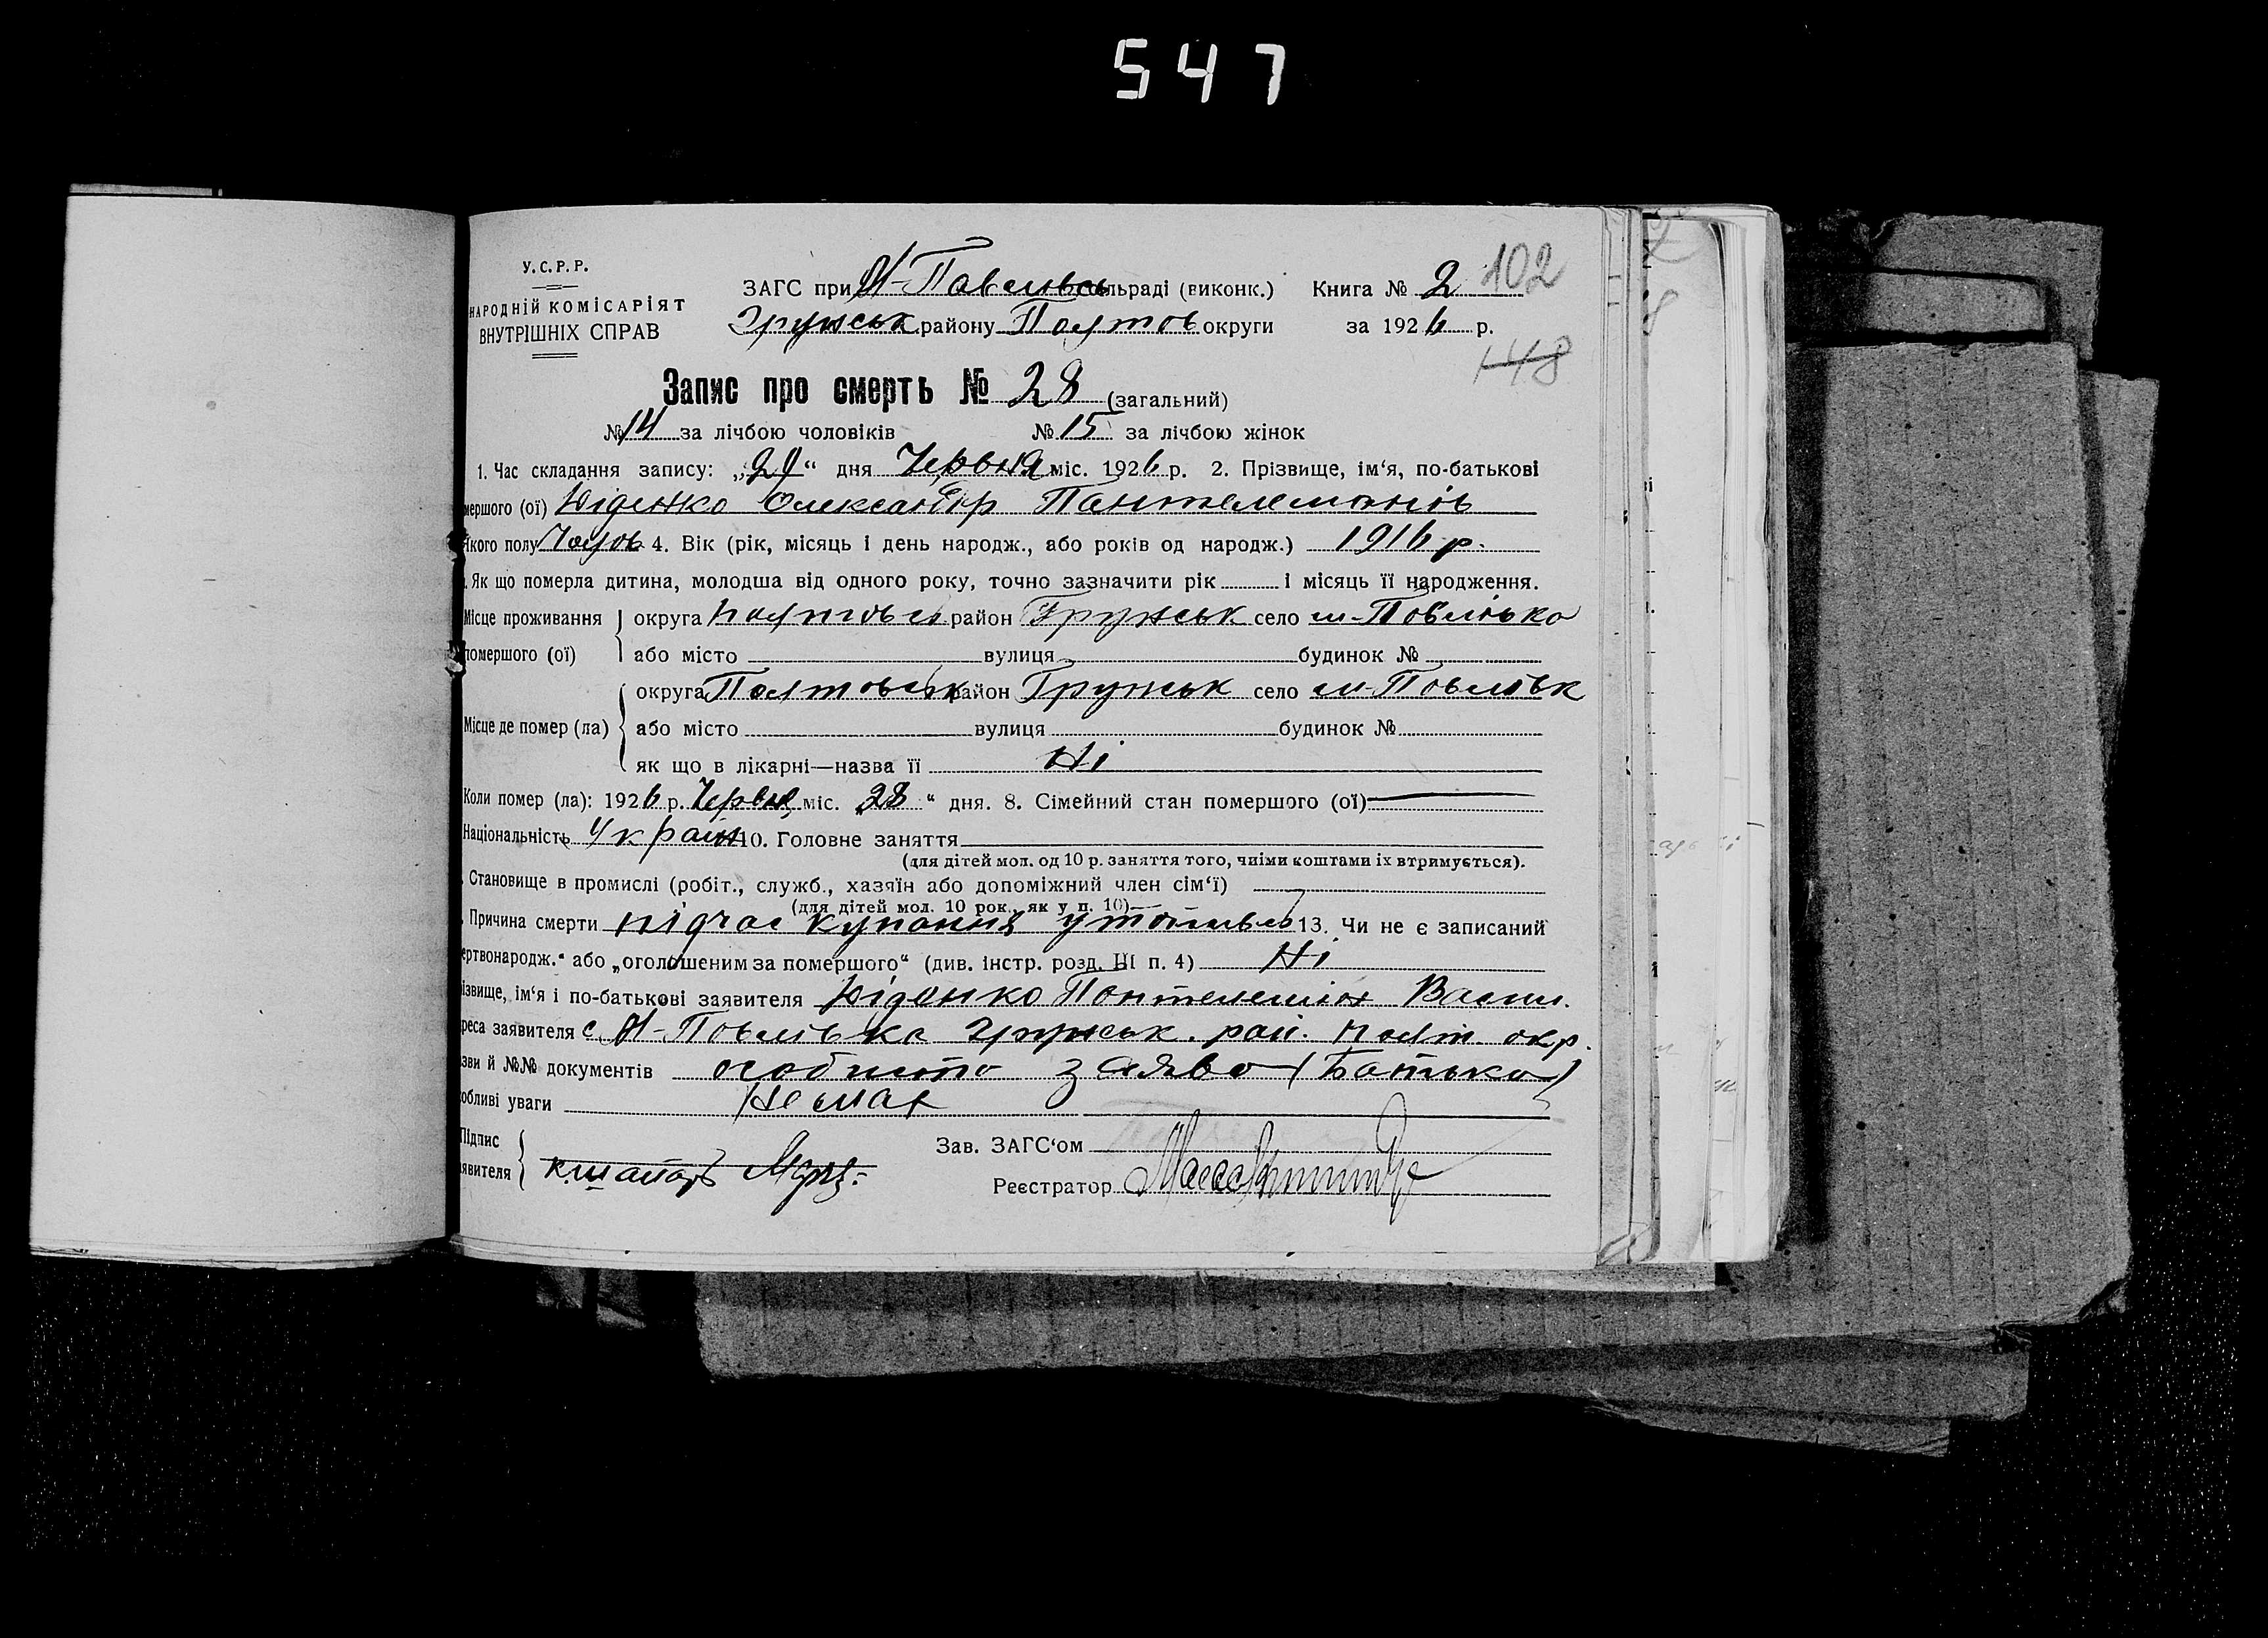 547
У.С.Р.Р.
НАРОДНІЙ КОМІСАРІЯТ
ВНУТРІШНІХ СПРАВ
ЗАГС при М-Павлівсь сільраді (виконк.) Книга № 2 102
Грунськ району Полтов округи за 1926 р.
148
Запис про смерть № 28 (загальний)
№ 14 за лічбою чоловіків № 15 за лічбою жінок
1. Час складання запису: „29“ дня Червня міс. 1926 р. 2. Прізвище, ім‘я, по-батькові
мершого (ої) Діденко Олександр Пантелемонів
якого полу Чолов 4. Вік (рік, місяць і день народж., або років од народж.) 1916 р.
Як що померла дитина, молодша від одного року, точно зазначити рік і місяць її народження.
Місце проживання округа Полтовсь район Грунськ село М-Повлівка
помершого (ої) або місто вулиця будинок №
округа Полтовськ район Грунськ село М-Повлівк
Місце де помер (ла) або місто вулиця будинок №
як що в лікарні—назва її Ні
Коли помер (ла): 1926 р. Червня міс. „28“ дня. 8. Сімейний стан помершого (ої)
Національність Україн 10. Головне заняття
(для дітей мол. од 10 р. заняття того, чиїми коштами їх втримується).
Становище в промислі (робіт., служб., хазяїн або допоміжний член сім‘ї)
(для дітей мол. 10 рок., як у п. 10)
Причина смерти підчас купання утопився 13. Чи не є записаний
ертвонародж.“ або „оголошеним за помершого“ (див. інстр. розд. III п. 4) Ні
ізвище, ім‘я і по-батькові заявителя Діденко Понтелемон Васил.
реса заявителя с. М-Повлівка Грунськ. рай. Полт. окр.
зви й №№ документів особисто заява (Батька)
обливі уваги Немає
Підпис Зав. ЗАГС‘ом
явителя
Реєстратор